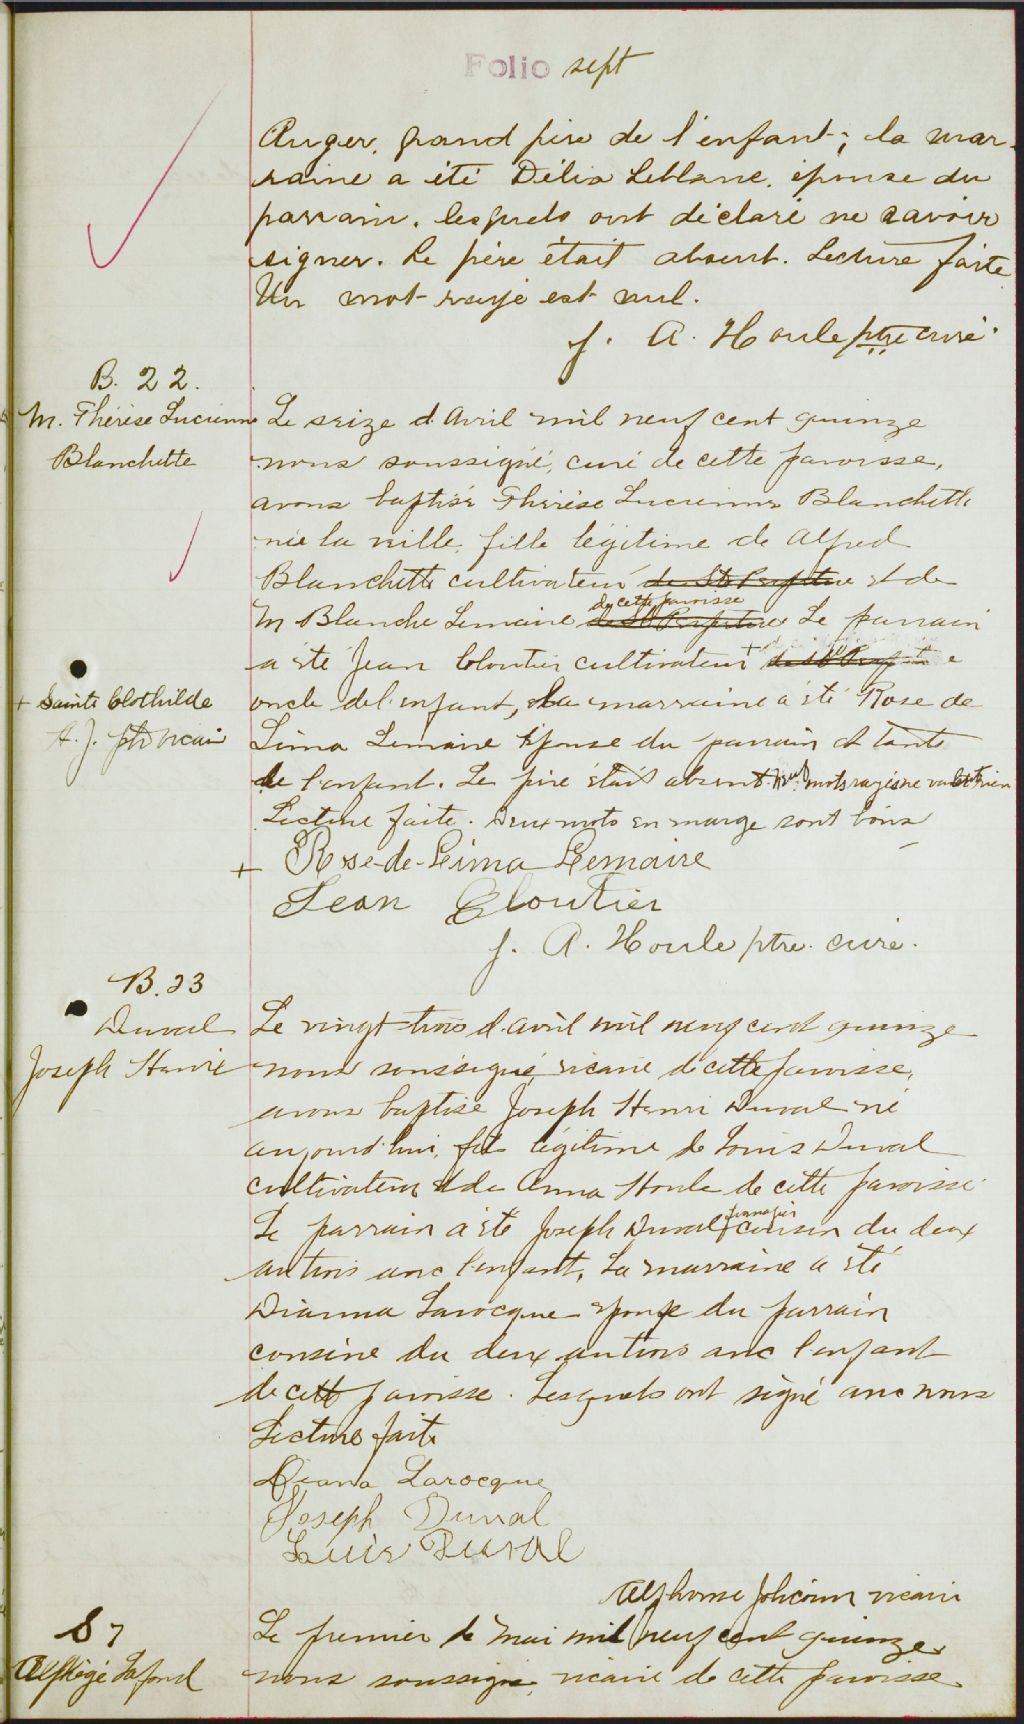 Folio sept
Auger, grand père de l'enfant; la mar-
raine a été Délia Leblanc, épouse du
parrain, lesquels ont déclaré ne savoir
signer. Le père était absent. Lecture faite
Un mot rayé est nul.
J. A. Houle ptre curé.
B. 22.
M. Thérèse Lucienne
Blanchette
Le seize d'Avril mil neuf cent quinze
nous soussigné, curé de cette paroisse,
avons baptisé Thérèse Lucienne Blanchette
née la veille, fille légitime de Alfred
Blanchette cultivateur de Ste Perpétue et de
M Blanche Lemaire de Ste Perpétue de cette paroisse Le parrain
a été Jean Cloutier cultivateur + de Ste Perpétue
+ Sainte Clothilde
A. J. ptre vicaire
oncle de l'enfant, la marraine a été Rose de
Lima Lemaire épouse du parrain et tante
de l'enfant. Le père était absent. mots rayés ne valent rien
Lecture faite. Deux mots en marge sont bons
+ Rose-de-Lima Lemaire
Jean Cloutier
J. A. Houle ptre. curé.
B. 23
Duval
Joseph Henri
Le vingt trois d'avril mil neuf cent quinze
nous soussigné, vicaire de cette paroisse,
avons baptisé Joseph Henri Duval né
aujourd'hui, fils légitime de Louis Duval
cultivateur et de Anna Houle de cette paroisse.
Le parrain a été Joseph Duval cousin du deux
au trois avec l'enfant, La marraine a été
Dianna Larocque épouse du parrain
cousine du deux au trois avec l'enfant
de cette paroisse. Lesquels ont signé avec nous
Lecture faite
Diana Larocque
Joseph Duval
Louis Duval
Alphonse Jolicoeur vicaire
S 7
Alphège Lafond
Le premier de Mai mil neuf cent quinze,
nous soussigné, vicaire de cette paroisse